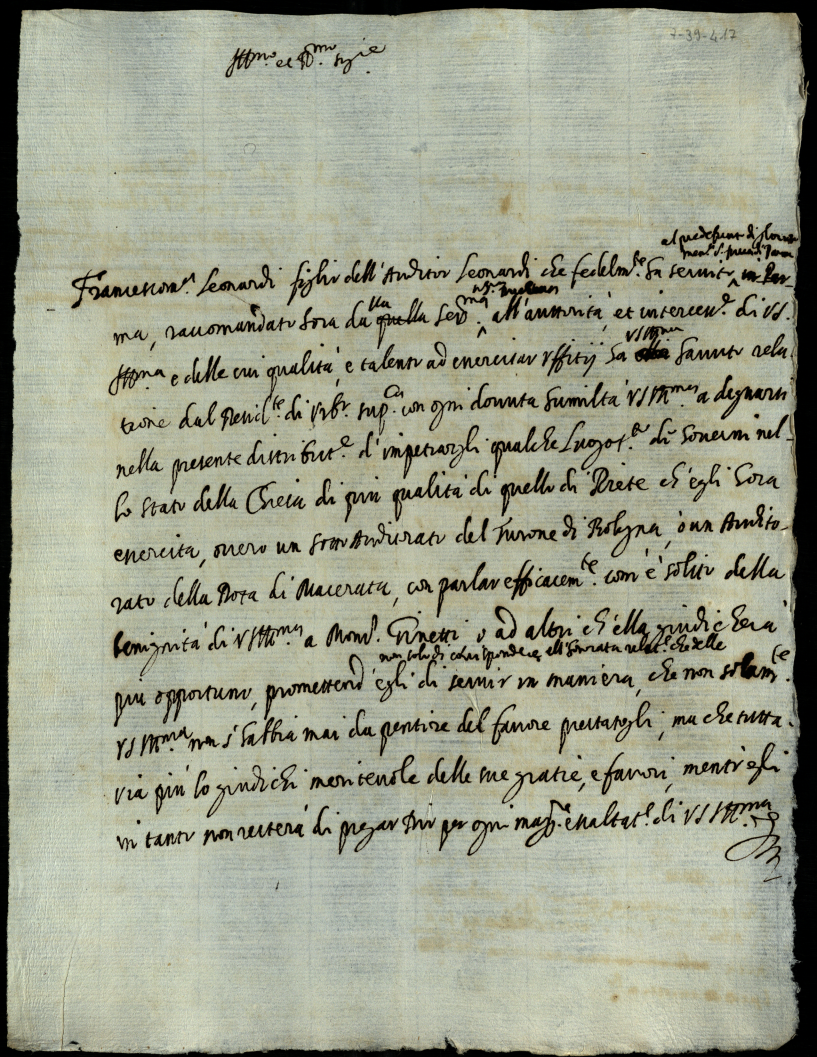 7-39-4.17
Ill.mo et R.mo Sig.re
al
Francescom.a Leonardi figlio dell'Auditor Leonardi che fedelm.te ha servito in Par-
ma, raccomandato hora da quella Ser.ma all'auttorità, et interces.e di VS.
Ill.ma e delle cui qualità, e talento ad essercitar uffitij ha VS Ill.ma havuto rela-
tione dal Presid.te di Urb.o sup.ca con ogni dovuta humiltà VS Ill.ma a degnarsi
nella presente distribut.e d'impetrargli qualche Luogot.te di Governi nel-
lo stato della Chiesa di più qualità di quello di Diete ch'egli hora
essercita, overo un sotto Auditorato del Turone di Bologna, ò un Audito-
rato della Rota di Macerata, con parlar efficacem.te com'è solito della
benignità di VS Ill.ma a Mons.r Ginetti o ad altri ch'ella giudicherà
non solo di corrispondere all' honorata relat.e che delle
più opportuno, promettend'egli di servir in maniera, che non solam.te
VS Ill.ma non s'habbia mai da pentire del favore prestatogli, ma che tutta-
via più lo giudichi meritevole delle sue gratie, e favori, mentr'egli
in tanto non resterà di pregar Dio per ogni mag.re essaltat.e di VS Ill.ma